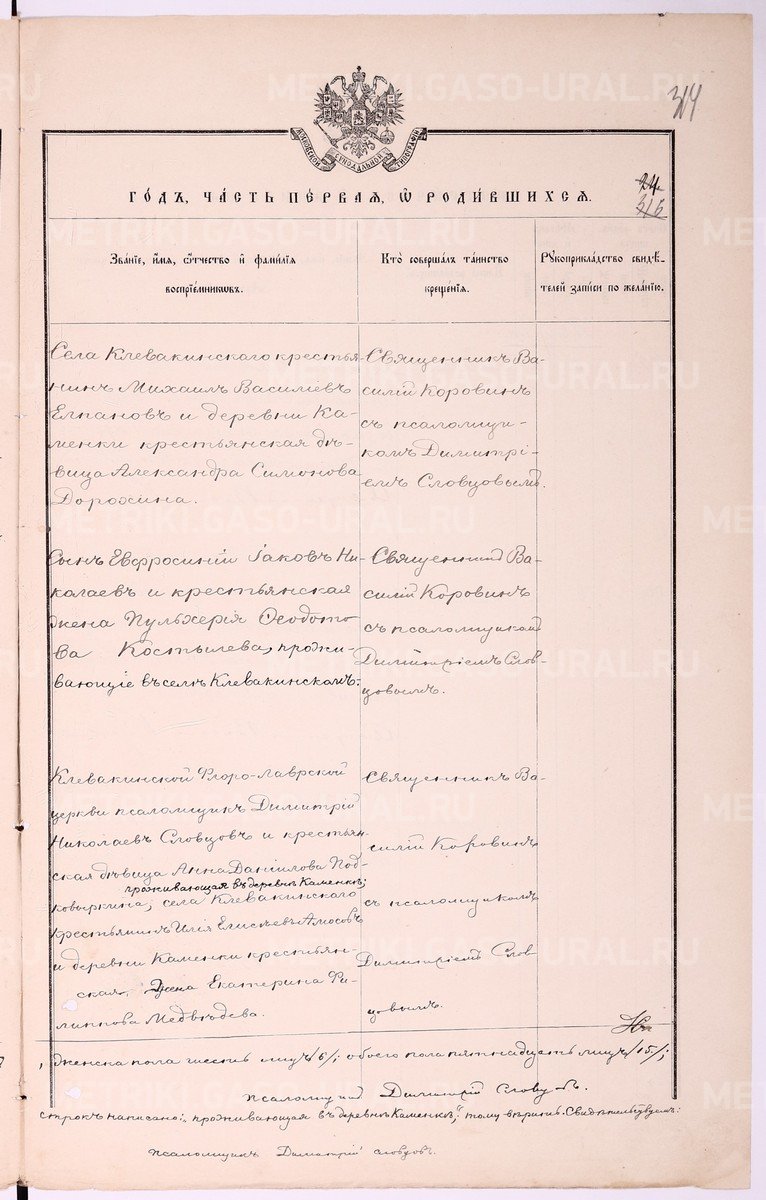 METRIKI.GASO-URAL.RU
314
МОСКОВСКОЙ СѴНОДАЛЬНОЙ ТИПОГРАФІИ
24
316
ГОДЪ, ЧАСТЬ ПЕРВАЯ, Ѿ РОДИВШИХСЯ.
Званіе, имя, отчество и фамилія
воспріемниковъ.
Кто совершалъ таинство
крещенія.
Рукоприкладство свидѣ-
телей записи по желанію.
Села Клевакинскаго крестья-
нинъ Михаилъ Василіевъ
Епановъ и деревни Ка-
менки крестьянская дѣ-
вица Александра Симонова
Дорохина.
Священникъ Ва-
силій Коровинъ
съ псаломщи-
комъ Димитрі-
емъ Словцовымъ.
Сынъ Евфросиніи Іаковъ Ни-
колаевъ и крестьянская
жена Пульхерія Ѳеодото-
ва Костылева, прожи-
вающіе въ селѣ Клевакинскомъ.
Священникъ Ва-
силій Коровинъ
съ псаломщикомъ
Димитріемъ Слов-
цовымъ.
Клевакинской Флоро-Лаврской
церкви псаломщикъ Димитрій
Николаевъ Словцовъ и крестьян-
ская дѣвица Анна Даніилова Под-
проживающая въ деревнѣ Каменкѣ;
ковыркина; села Клевакинскаго
крестьянинъ Илія Елисѣевъ Амосовъ
и деревни Каменки крестьян-
ская жена Екатерина Фи-
липпова Медвѣдева.
Священникъ Ва-
силій Коровинъ
съ псаломщикомъ
Димитріемъ Слов-
цовымъ.
женска пола шесть лицъ /6/; обоего пола пятнадцать лицъ /15/;
псаломщикъ Димитрій Словцовъ.
строкъ написано: „проживающая въ деревнѣ Каменкѣ;" тому вѣрить. Свидѣтельствуемъ:
псаломщикъ Димитрій Словцовъ.